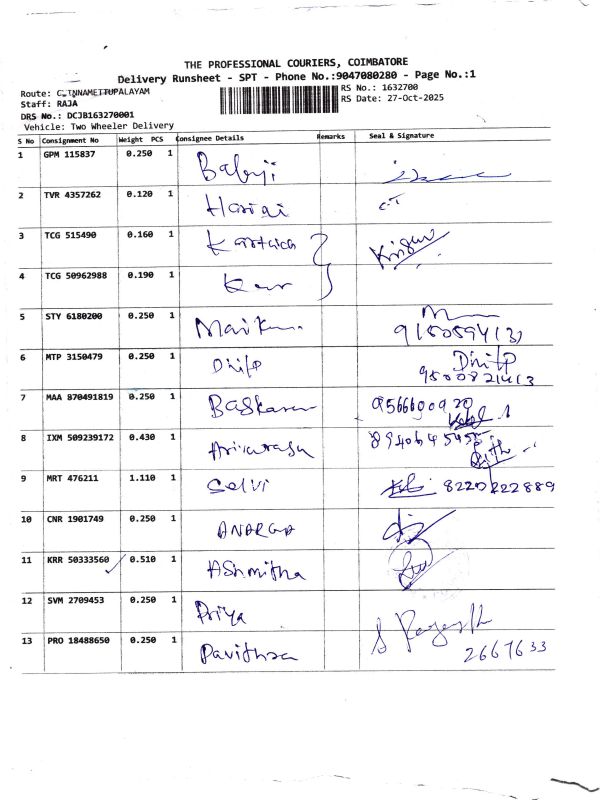 THE PROFESSIONAL COURIERS, COIMBATORE
Delivery Runsheet - SPT - Phone No.:9047080280 - Page No.:1
Route: CHINNAMETTUPALAYAM
Staff: RAJA
DRS No.: DCJB163270001
Vehicle: Two Wheeler Delivery
RS No.: 1632700
RS Date: 27-Oct-2025
S No Consignment No Weight PCS Consignee Details Remarks Seal & Signature
1 GPM 115837 0.250 1 Babuji
2 TVR 4357262 0.120 1
3 TCG 515490 0.160 1 Karthick
4 TCG 50962988 0.190 1
5 STY 6180200 0.250 1
6 MTP 3150479 0.250 1 Dilip Dilip
7 MAA 870491819 0.250 1 Baskaran
8 IXM 509239172 0.430 1 Arivarasu
9 MRT 476211 1.110 1 Selvi 8220222889
10 CNR 1901749 0.250 1
11 KRR 50333560 0.510 1 AShmitha
12 SVM 2709453 0.250 1 Priya
13 PRO 18488650 0.250 1 Pavithra 2667633